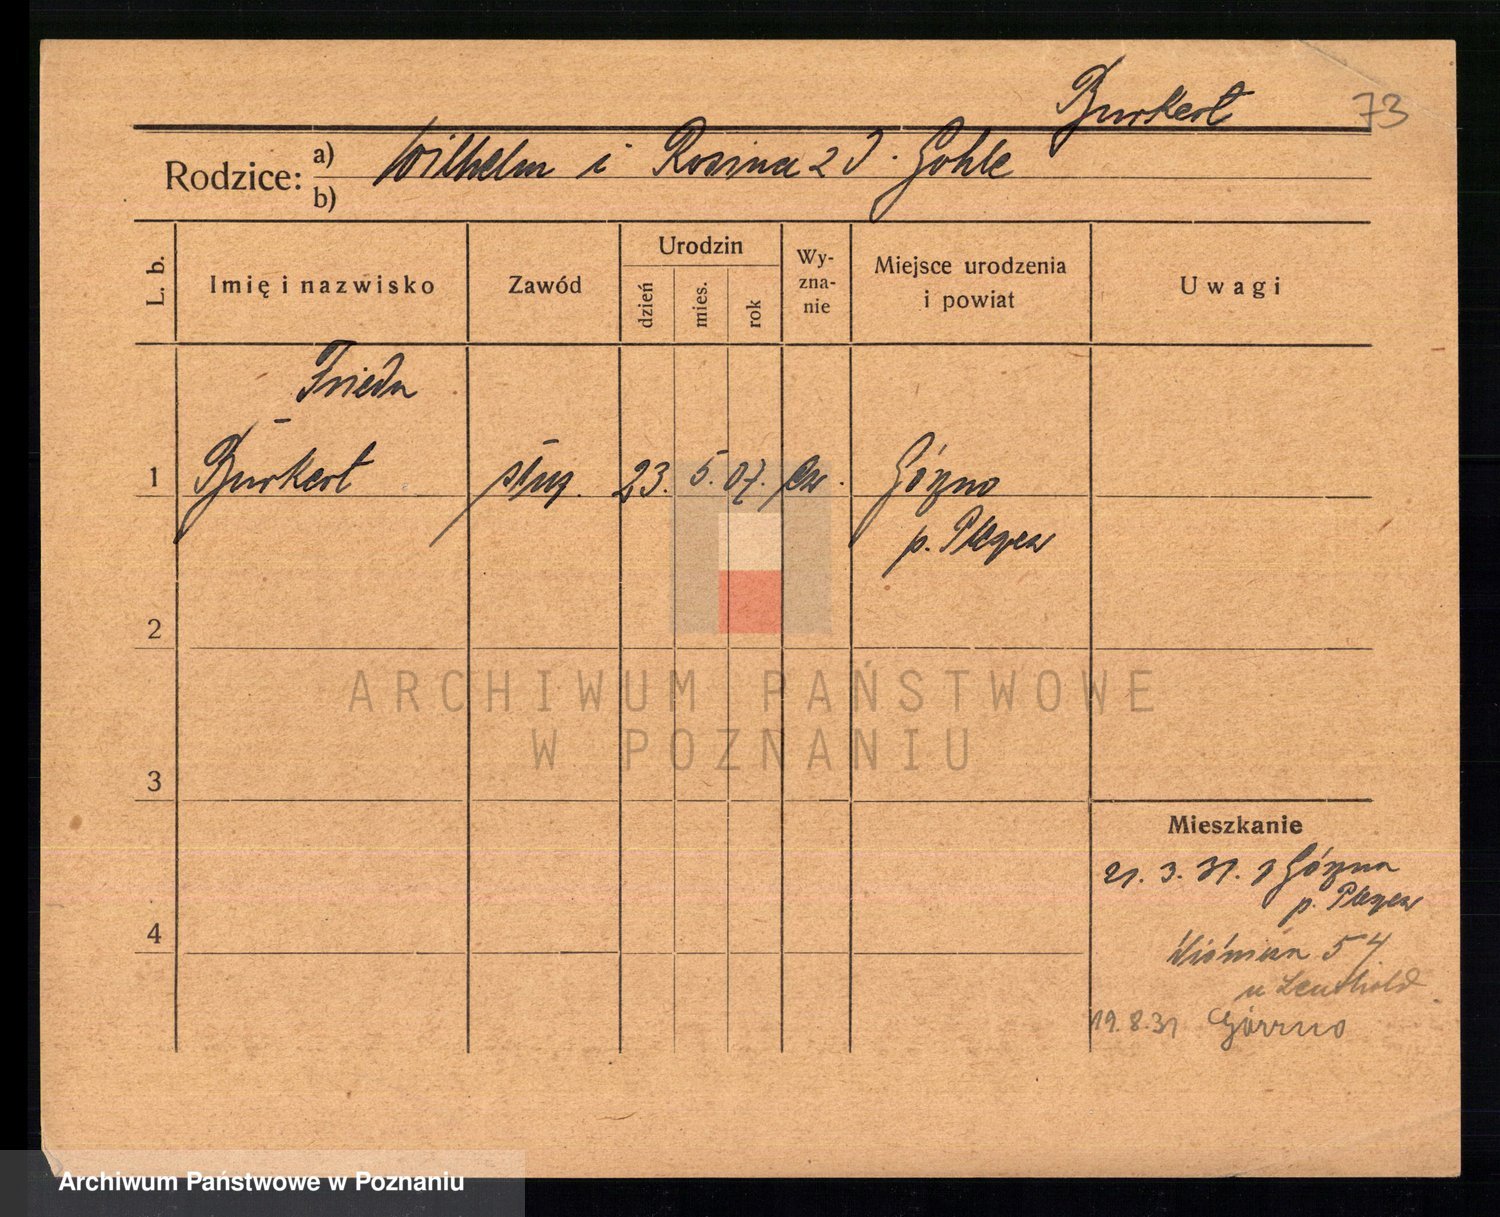 Burkert 73
Rodzice: a) Wilhelm i Rosina z d. Gohle
b)
L. b. Imię i nazwisko Zawód Urodzin dzień mies. rok Wy-zna-nie Miejsce urodzenia i powiat Uwagi
Frieda
1 Burkert służ. 23. 5. 07. ew. Górzno
p. Pleszew
2
ARCHIWUM PAŃSTWOWE
W POZNANIU
3
Mieszkanie
21. 3. 31. z Górzna
p. Pleszew
4
54
u Leuthold
19.8.31 Górzno
Archiwum Państwowe w Poznaniu